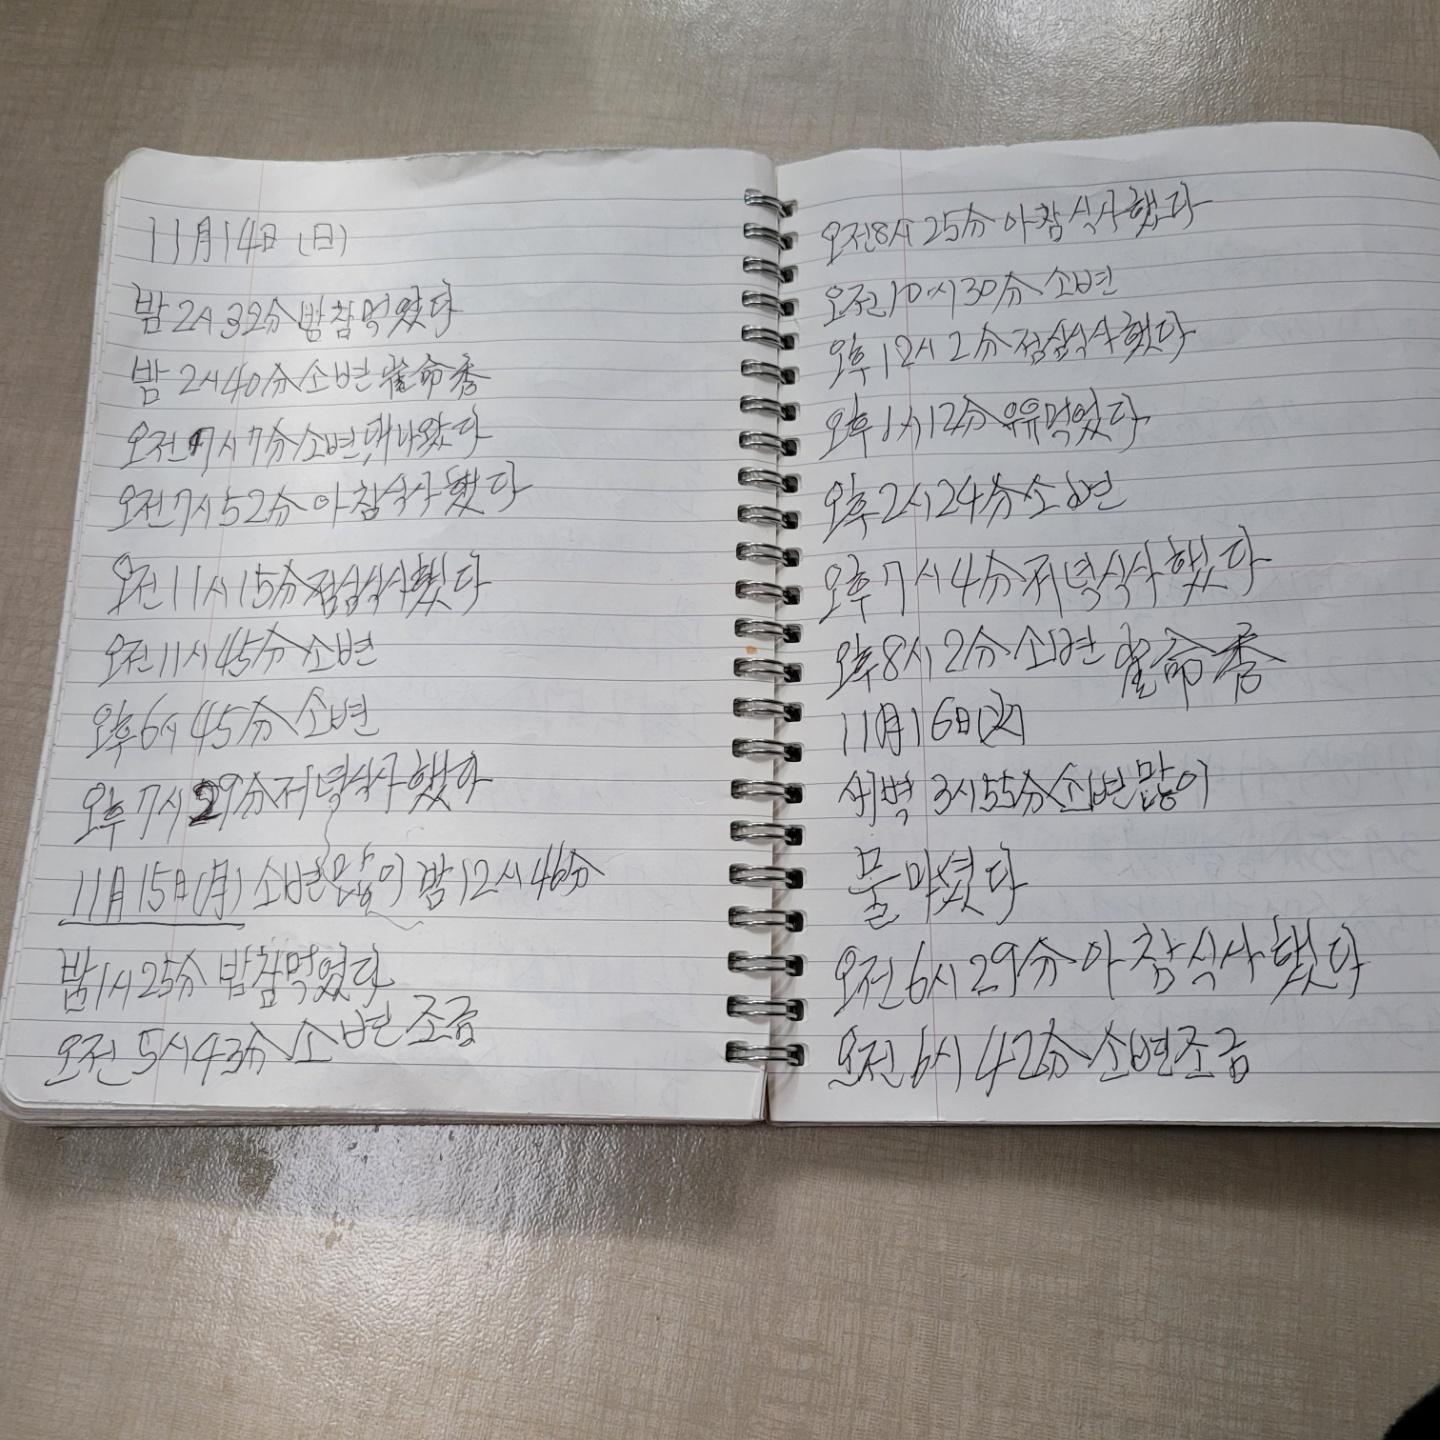 11月14日(日)
밤2시32分밤참먹었다
밤2시40分소변崔命秀
오전7시7分소변 나왔다
오전7시52分아침식사했다
오전11시15分점심식사했다
오전11시45分소변
오후6시45分소변
오후7시29分저녁식사했다
11月15日(月)소변많이 밤12시46分
밤1시25分 밤참먹었다
오전5시43分소변조금
오전8시25分아침식사했다
오전10시30分소변
오후12시2分점심식사했다
오후1시12分우유먹었다
오후2시24分소변
오후7시4分저녁식사했다
오후8시2分소변崔命秀
11月16日(火)
새벽3시55分소변많이
물마셨다
오전6시29分아침식사했다
오전6시42分소변조금